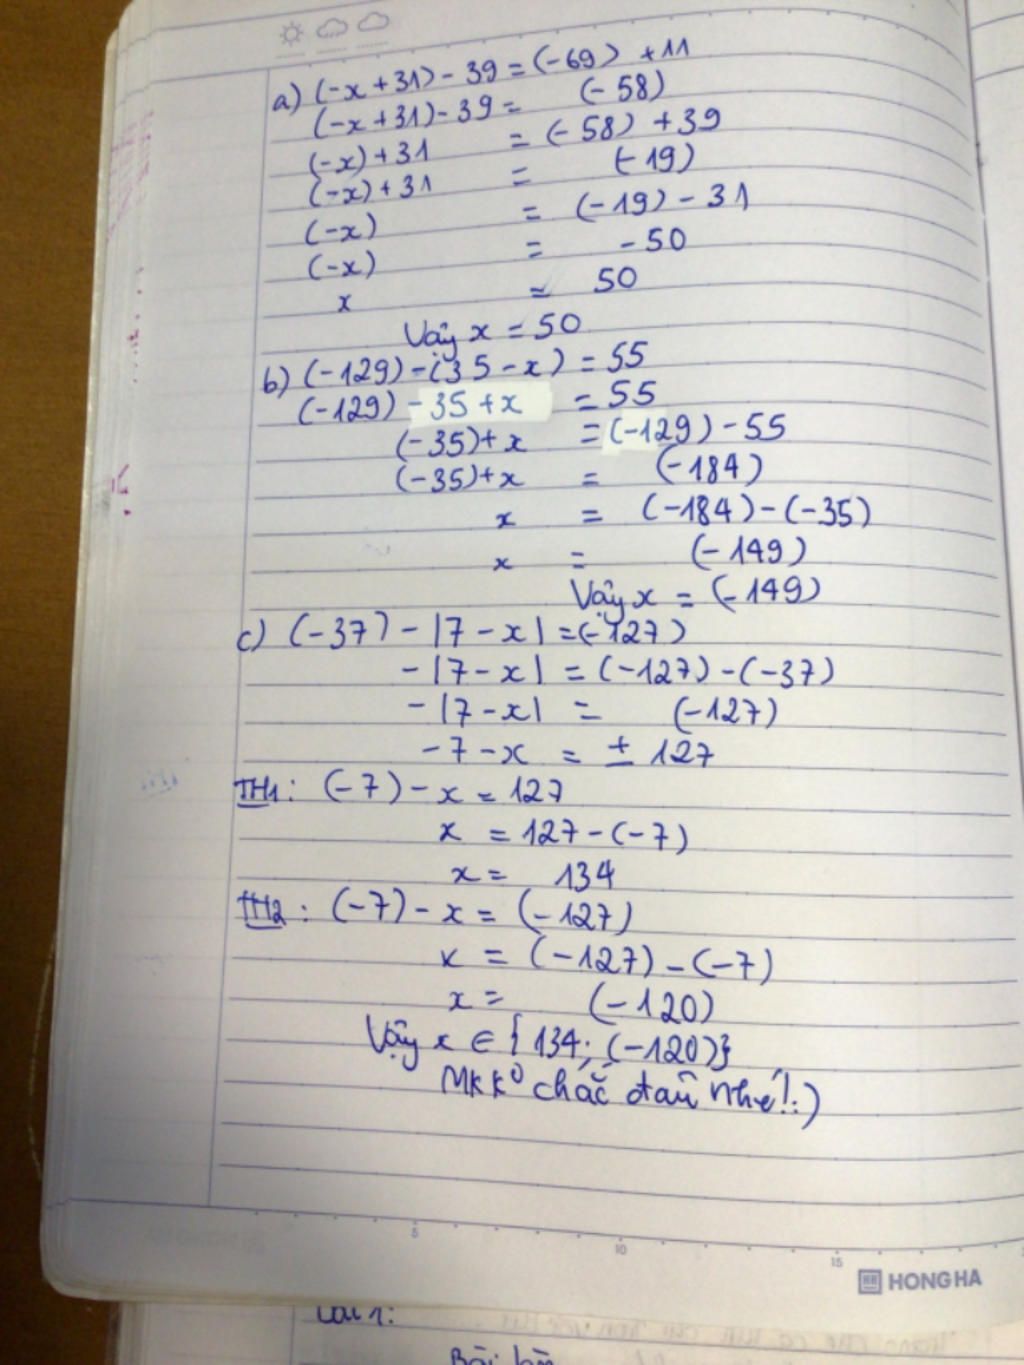 a) (-x+31) - 39 = (-69) +11
(-x+31)-39 = (-58)
(-x)+31 = (-58) +39
(-x)+31 = (-19)
(-x) = (-19) - 31
(-x) = -50
x = 50
Vậy x = 50
b) (-129) - (35 - x) = 55
(-129) - 35 + x = 55
(-35)+x = (-129) - 55
(-35)+x = (-184)
x = (-184) - (-35)
x = (-149)
Vậy x = (-149)
c) (-37) - |7 - x| = (-127)
- |7 - x| = (-127) - (-37)
- |7 - x| = (-127)
-7 - x = ± 127
TH1: (-7) - x = 127
x = 127 - (-7)
x = 134
TH2: (-7) - x = (-127)
x = (-127) - (-7)
x = (-120)
Vậy x ∈ {134; (-120)}
Mk k⁰ chắc đâu nhé! :)
5 10 15
HONG HA
Bài 1: